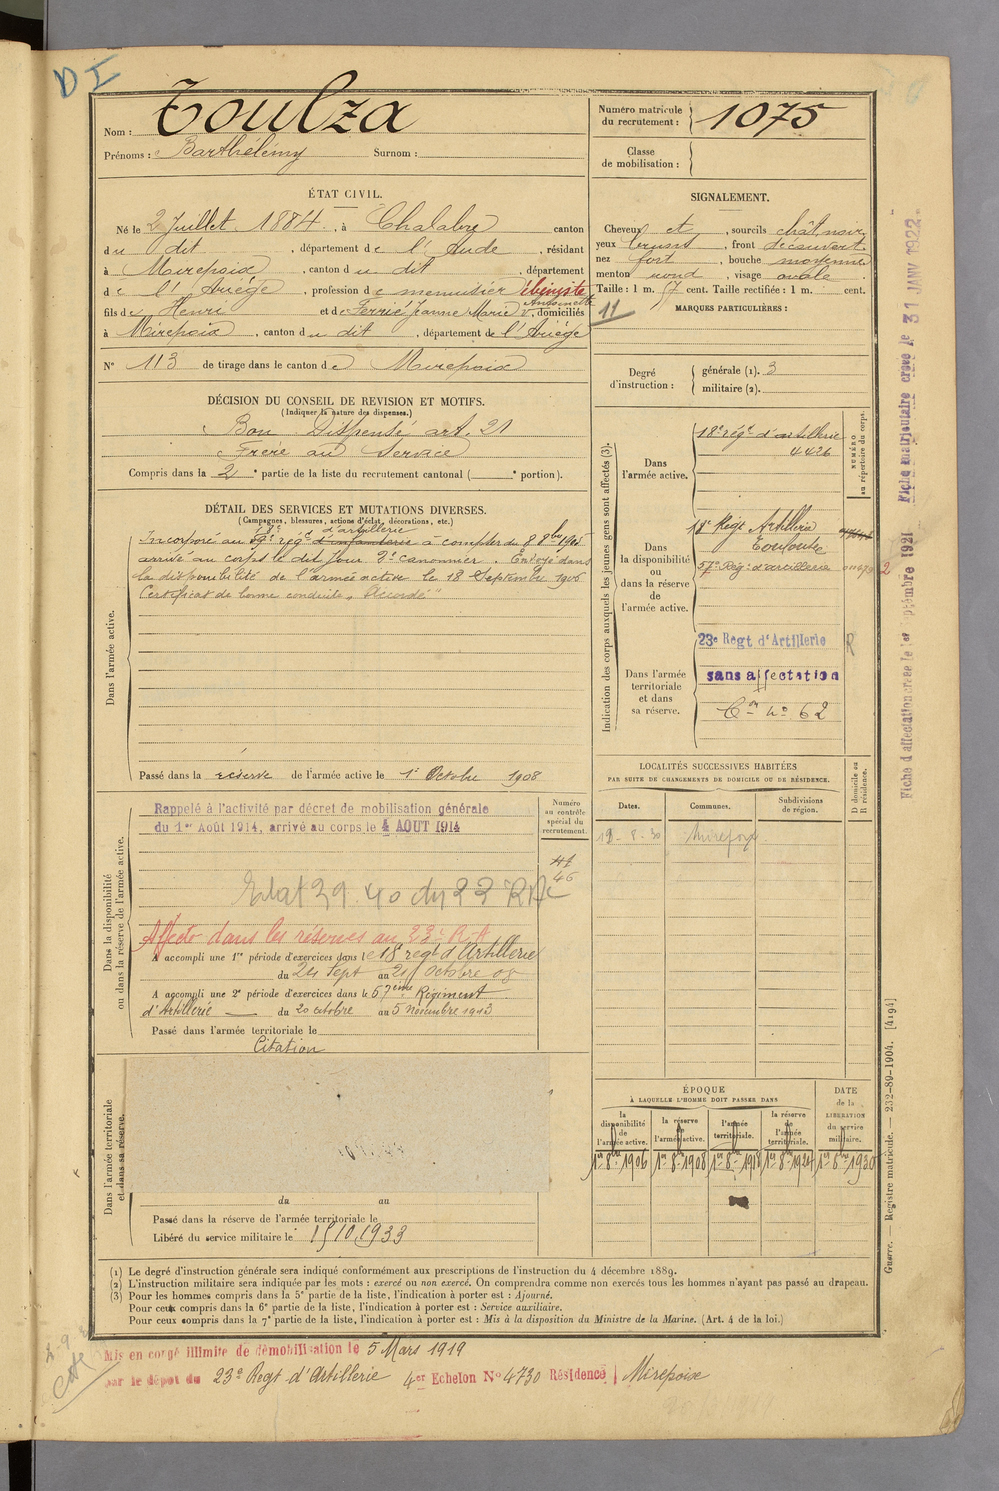 DI
Nom : Toulza
Prénoms : Barthélémy Surnom :
Numéro matricule du recrutement : 1075
Classe de mobilisation :
ÉTAT CIVIL.
Né le 2 Juillet 1884, à Chalabre canton
du dit, département de l'Aude, résidant
à Mirepoix, canton du dit, département
de l'Ariège, profession de menuisier ébéniste
fils de Henri et de Ferrié Jeanne Marie Antoinette, domiciliés
à Mirepoix, canton du dit, département de l'Ariège
N° 113 de tirage dans le canton de Mirepoix
SIGNALEMENT.
Cheveux et, sourcils chât noir
yeux bruns, front découvert
nez fort, bouche moyenne
menton rond, visage ovale
Taille : 1 m. 67 cent. Taille rectifiée : 1 m. cent.
11
MARQUES PARTICULIÈRES :
Degré d'instruction : générale (1). 3
militaire (2).
DÉCISION DU CONSEIL DE REVISION ET MOTIFS.
(Indiquer la nature des dispenses.)
Bon Dispensé art. 21
Frère au Service
Compris dans la 2e partie de la liste du recrutement cantonal ( e portion).
DÉTAIL DES SERVICES ET MUTATIONS DIVERSES.
(Campagnes, blessures, actions d'éclat, décorations, etc.)
18e d'artillerie
Incorporé au régt d'infanterie à compter du 8 8bre 1905
arrivé au corps le dit jour 2e canonnier. Envoyé dans
la disponibilité de l'armée active le 18 Septembre 1906
Certificat de bonne conduite „Accordé"
Dans l'armée active.
Passé dans la réserve de l'armée active le 1er Octobre 1908
Indication des corps auxquels les jeunes gens sont affectés (3).
NUMÉRO au répertoire du corps.
Dans l'armée active.
18e régt d'artillerie
4426
Dans la disponibilité ou dans la réserve de l'armée active.
18e Régt Artillerie
Toulouse
57e Rég. d'artillerie
Dans l'armée territoriale et dans sa réserve.
23e Regt d'Artillerie R
sans affectation
Con no 62
Fiche d'affectation créée le 1er Septembre 1921
Fiche matriculaire créée le 31 JANV 1922
LOCALITÉS SUCCESSIVES HABITÉES
PAR SUITE DE CHANGEMENTS DE DOMICILE OU DE RÉSIDENCE.
Dates. Communes. Subdivisions de région. D domicile ou R résidence.
19-8-30 Mirepoix
Dans la disponibilité ou dans la réserve de l'armée active.
Numéro au contrôle spécial du recrutement.
Rappelé à l'activité par décret de mobilisation générale
du 1er Août 1914, arrivé au corps le 4 AOUT 1914
46
Etat 39.40 du 23 RAC
Affecté dans les réserves au 23e R.A
A accompli une 1re période d'exercices dans le 18e régt d'Artillerie
du 24 Sept au 21 Octobre 08
A accompli une 2e période d'exercices dans le 57ème Régiment
d'Artillerie du 20 octobre au 5 novembre 1913
Passé dans l'armée territoriale le
Citation
Dans l'armée territoriale et dans sa réserve.
du au
Passé dans la réserve de l'armée territoriale le
Libéré du service militaire le 15 10 1933
ÉPOQUE
À LAQUELLE L'HOMME DOIT PASSER DANS
la disponibilité de l'armée active. la réserve de l'armée active. l'armée territoriale. la réserve de l'armée territoriale.
DATE de la LIBÉRATION du service militaire.
1er 8bre 1906 1er 8bre 1908 1er 8bre 1918 1er 8bre 1924 1er 8bre 1930
Guerre. — Registre matricule. — 232-89-1904. [4194]
(1) Le degré d'instruction générale sera indiqué conformément aux prescriptions de l'instruction du 4 décembre 1889.
(2) L'instruction militaire sera indiquée par les mots : exercé ou non exercé. On comprendra comme non exercés tous les hommes n'ayant pas passé au drapeau.
(3) Pour les hommes compris dans la 5e partie de la liste, l'indication à porter est : Ajourné.
Pour ceux compris dans la 6e partie de la liste, l'indication à porter est : Service auxiliaire.
Pour ceux compris dans la 7e partie de la liste, l'indication à porter est : Mis à la disposition du Ministre de la Marine. (Art. 4 de la loi.)
Mis en congé illimité de démobilisation le 5 Mars 1919
par le dépôt du 23e Regt d'Artillerie 4er Echelon No 4730 Résidence Mirepoix